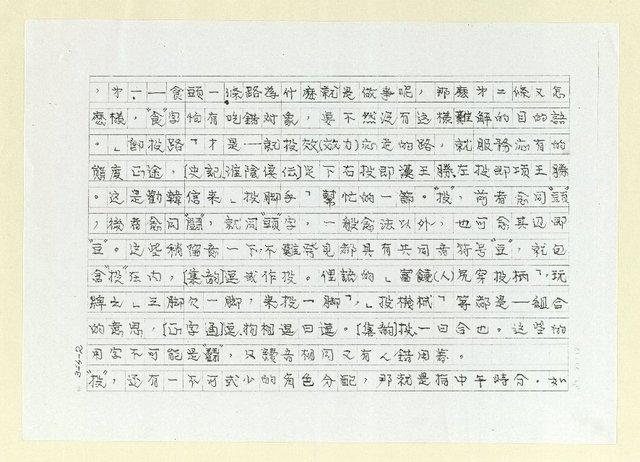 ，才．——食頭一条路為什麼就是做事呢，那麼才二條又怎
麼樣，"食"字怕有吃錯对象，要不然沒有这樣難解的目的語
。「卽投路」才是一就投效(效力)応走的路，就服務応有的
態度正途，[史記,淮陰侯伝]足下右投即漢王勝,左投即項王勝
。这是勸韓信来「投脚手」幫忙的一節。"投"，前者唸同"頭"
，後者唸同"鬪"，就同"頭"字，一般唸法以外，也可唸其辺即
"豆"。这些稍留意一下,不難発見都具有共同音符号"豆"，就包
含"投"在内，[集韵]逗或作投。俚諺的「富饒(人)兄穿投柄」,玩
牌之「三脚欠一脚，来投一脚」,「投機械」等都是一組合
的意思，[正字通]逗,物相遇曰逗。[集韵]投,一曰合也。这些的
用字不可能是"鬪"，只讀音相同又有人錯用著。
"投"，还有一不可或少的角色分配，那就是指中午時分．如
344-2